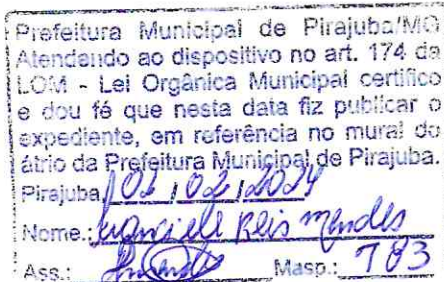 Prefeitura Municipal de Pirajuba/MG
Atendendo ao dispositivo no art. 174 da
LOM - Lei Orgânica Municipal certifico
e dou fé que nesta data fiz publicar o
expediente, em referência no mural do
átrio da Prefeitura Municipal de Pirajuba.
Pirajuba, 02 / 02 / 2024
Nome.: Reis Mendes
Ass.: Masp.: 783